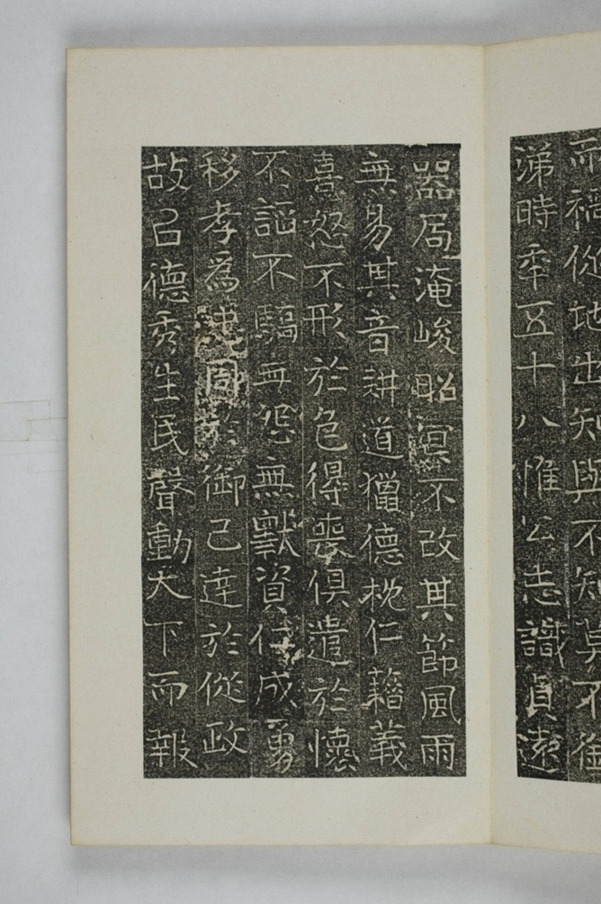 而禍從地出知與不知莫不銜
涕時年五十八惟公志識貞遠
器局淹峻昭冥不改其節風雨
無易其音耕道獵德枕仁藉義
喜怒不形於色得喪俱遣於懷
不謟不驕無怨無厭資仁成勇
移孝爲忠同於御己達於從政
故召德秀生民聲動天下而報